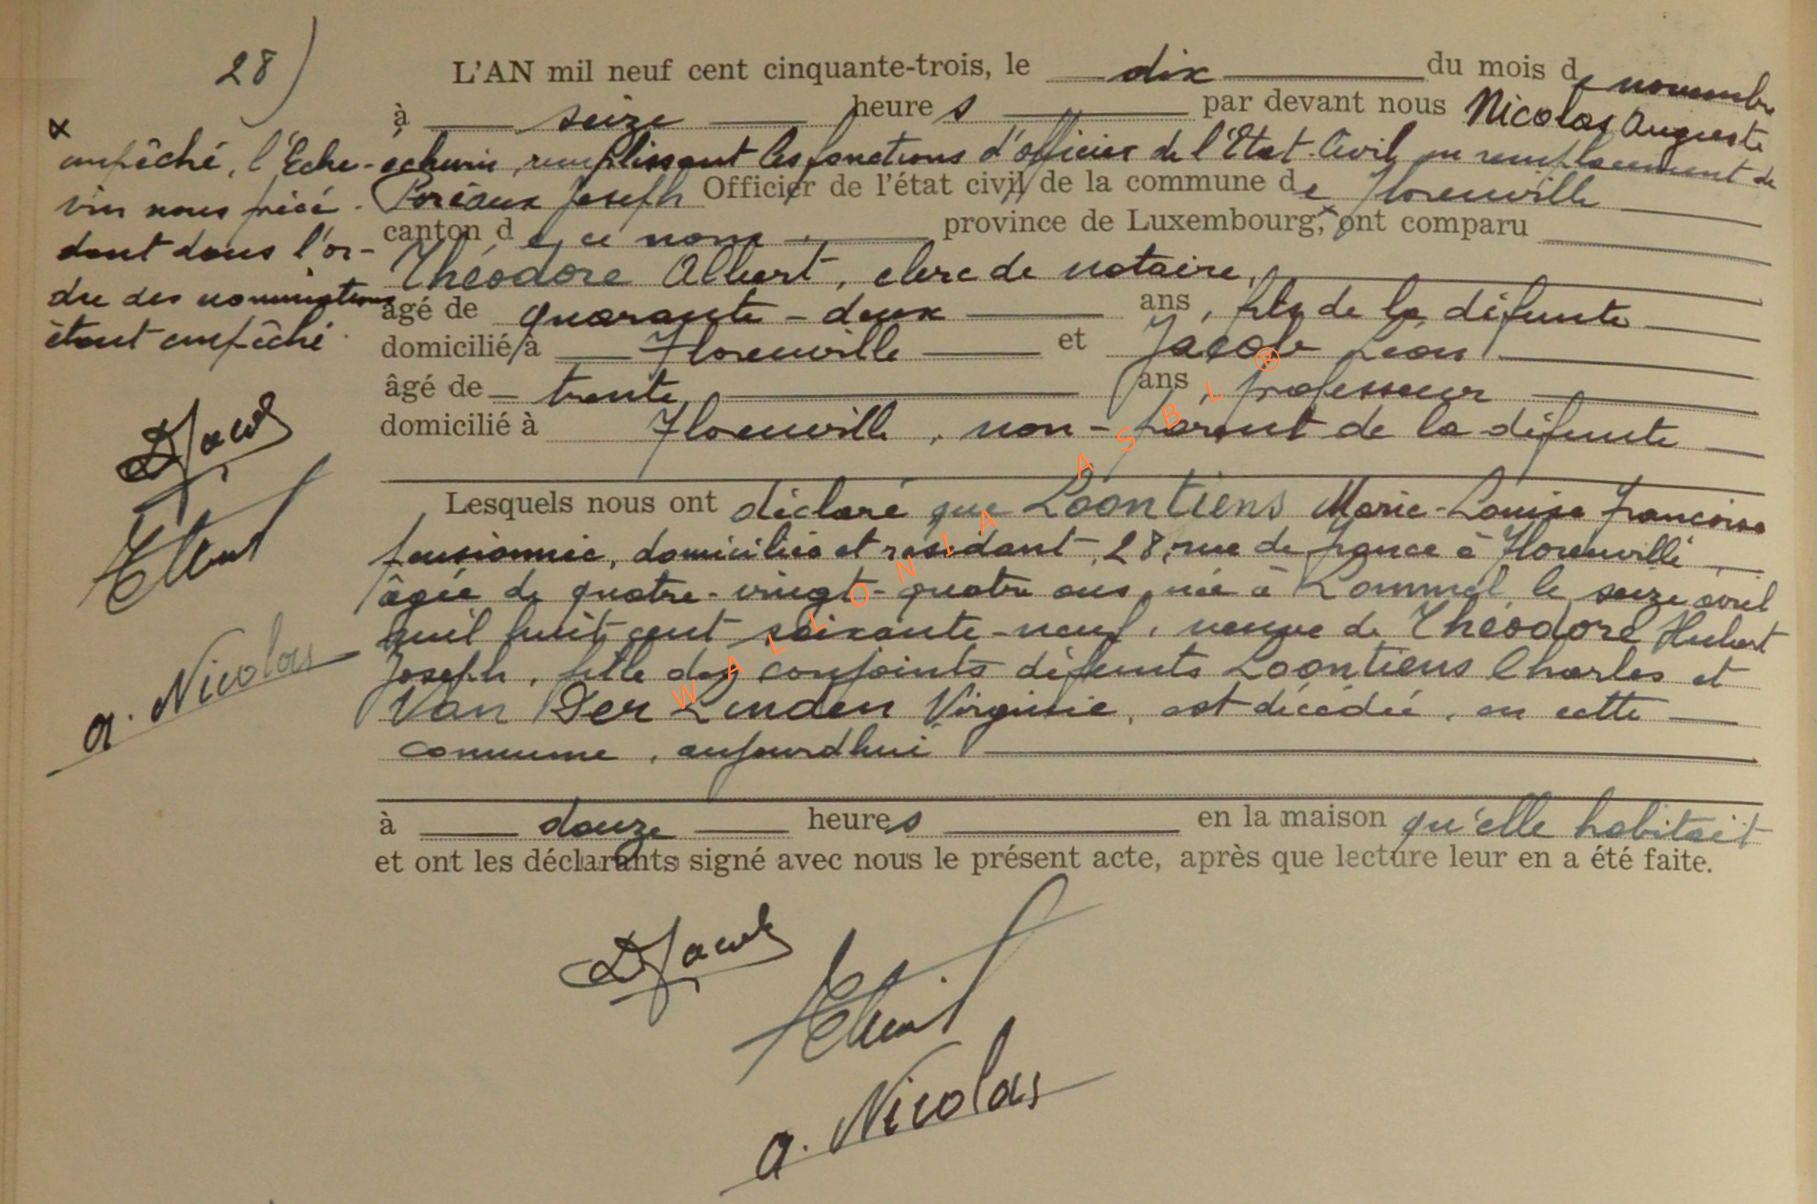 28)
L'AN mil neuf cent cinquante-trois, le dix du mois de novembre
à seize heures par devant nous Nicolas Auguste
échevin, remplissant les fonctions d'officier de l'Etat-Civil en remplacement de
Poriaux Joseph Officier de l'état civil de la commune de Florenville
canton de ce nom. province de Luxembourg, x ont comparu
Théodore Albert, clerc de notaire,
âgé de quarante-deux ans, fils de la défunte
domicilié à Florenville et Jacob Léon
âgé de trente ans professeur
domicilié à Florenville, non-parent de la défunte
Lesquels nous ont déclaré que Loontiens Marie-Louise Françoise
pensionnée, domiciliée et résidant 28, rue de France à Florenville
âgée de quatre-vingt-quatre ans, née à Lommel le seize avril
mil huit cent soixante-neuf, veuve de Théodore Hubert
Joseph, fille des conjoints défunts Loontiens Charles et
Van Der Linden Virginie, est décédée, en cette
commune, aujourdhui
à douze heures en la maison qu'elle habitait
et ont les déclarants signé avec nous le présent acte, après que lecture leur en a été faite.
x
empêché, l'Eche-
vin nous précé-
dant dans l'or-
dre des nominations
étant empêché.
Jacob
a. Nicolas
Jacob
a. Nicolas
WALLONIA ASBL ®